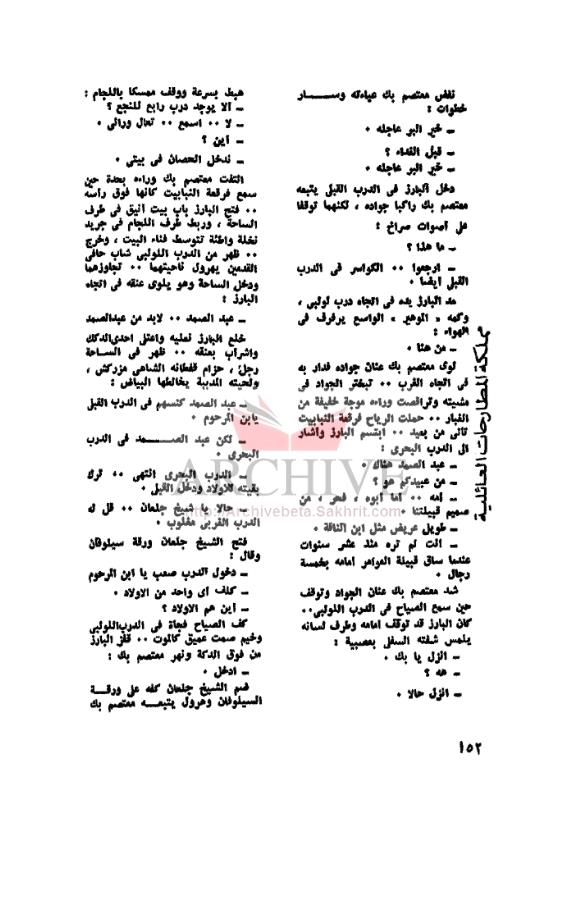 نفض معتصم بك عباءته وسـار
خطوات :
ـ خير البر عاجله ٠
ـ قبل الغداء ؟
ـ خير البر عاجله ٠
دخل البارز فى الدرب القبلى يتبعه
معتصم بك راكبا جواده ، لكنهما توقفا
على أصوات صراخ :
ـ ما هذا ؟
ـ ارجعوا ٠٠ الكواسر فى الدرب
القبلى أيضا ٠
مد البارز يده فى اتجاه درب لولبى ،
وكمه « الوهبر » الواسع يرفرف فى
الهواء :
ـ من هنا ٠
لوى معتصم بك عنان جواده فدار به
فى اتجاه الغرب ٠٠ تبختر الجواد فى
مشيته وتراقصت وراءه موجة خفيفة من
الغبار ٠٠ حملت الرياح فرقعة النبابيت
تأتى من بعيد ٠٠ ابتسم البارز وأشار
الى الدرب البحرى :
ـ عبد الصمد هناك ٠
ـ من عبيدكم هو ؟
ـ أمه ٠٠ أما أبوه ، فحر ، من
صميم قبيلتنا ٠
ـ طويل عريض مثل ابن الناقة ٠
ـ انت لم تره منذ عشر سنوات
عندما ساق قبيلة العوامر أمامه بخمسة
رجال ٠
شد معتصم بك عنان الجواد وتوقف
حين سمع الصياح فى الدرب اللولبى٠٠
كان البارز قد توقف أمامه وطرف لسانه
يلمس شفته السفلى بعصبية :
ـ انزل يا بك ٠
ـ هه ؟
ـ انزل حالا ٠
هبط بسرعة ووقف ممسكا باللجام :
ـ ألا يوجد درب رابع للنجع ؟
ـ لا ٠٠ اسمع ٠٠ تعال ورائى ٠
ـ أين ؟
ـ ندخل الحصان فى بيتى ٠
التفت معتصم بك وراءه بحدة حين
سمع فرقعة النبابيت كأنها فوق رأسه
٠٠ فتح البارز باب بيت أنيق فى طرف
الساحة ، وربط طرف اللجام فى جريد
نخلة واطئة تتوسط فناء البيت ، وخرج
٠٠ ظهر من الدرب اللولبى شاب حافى
القدمين يهرول ناحيتهما ٠٠ تجاوزهما
ودخل الساحة وهو يلوى عنقه فى اتجاه
البارز :
ـ عبد الصمد ٠٠ لابد من عبدالصمد
خلع البارز نعليه واعتلى احدى الدكك
واشرأب بعنقه ٠٠ ظهر فى الساحة
رجل ، حزام قفطانه الشاهى مزركش ،
ولحيته المدببة يخالطها البياض :
ـ عبد الصمد كنسهم فى الدرب القبلى
يابن المرحوم ٠
ـ لكن عبد الصـمد فى الدرب
البحرى ٠
ـ الدرب البحرى انتهى ٠٠ ترك
بقيته للأولاد ودخل القبلى ٠
ـ حالا يا شيخ جلعان ٠٠ قل له
الدرب الغربى مغلوب ٠
فتح الشيخ جلعان ورقة سيلوفان
وقال :
ـ دخول الدرب صعب يا ابن المرحوم
ـ كلف أى واحد من الاولاد ٠
ـ أين هم الاولاد ؟
كف الصياح فجأة فى الدرب اللولبى
وخيم صمت عميق كالموت ٠٠ قفز البارز
من فوق الدكة ونهر معتصم بك :
ـ ادخل ٠
ضم الشيخ جلعان كفه على ورقـة
السيلوفان وهرول يتبعـه معتصم بك
مملكة المطارحات العائلية
ARCHIVE
http://Archivebeta.Sakhrit.com
١٥٢